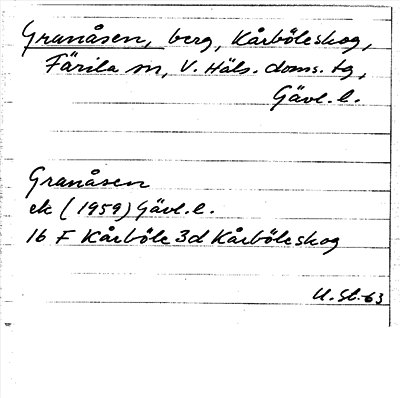 Granåsen, berg, Kårböleskog,
Färila sn, V. Häls. doms. tg,
Gävl. l.
Granåsen
ek (1959) Gävl. l.
16 F Kårböle 3d Kårböleskog
U. St. 63